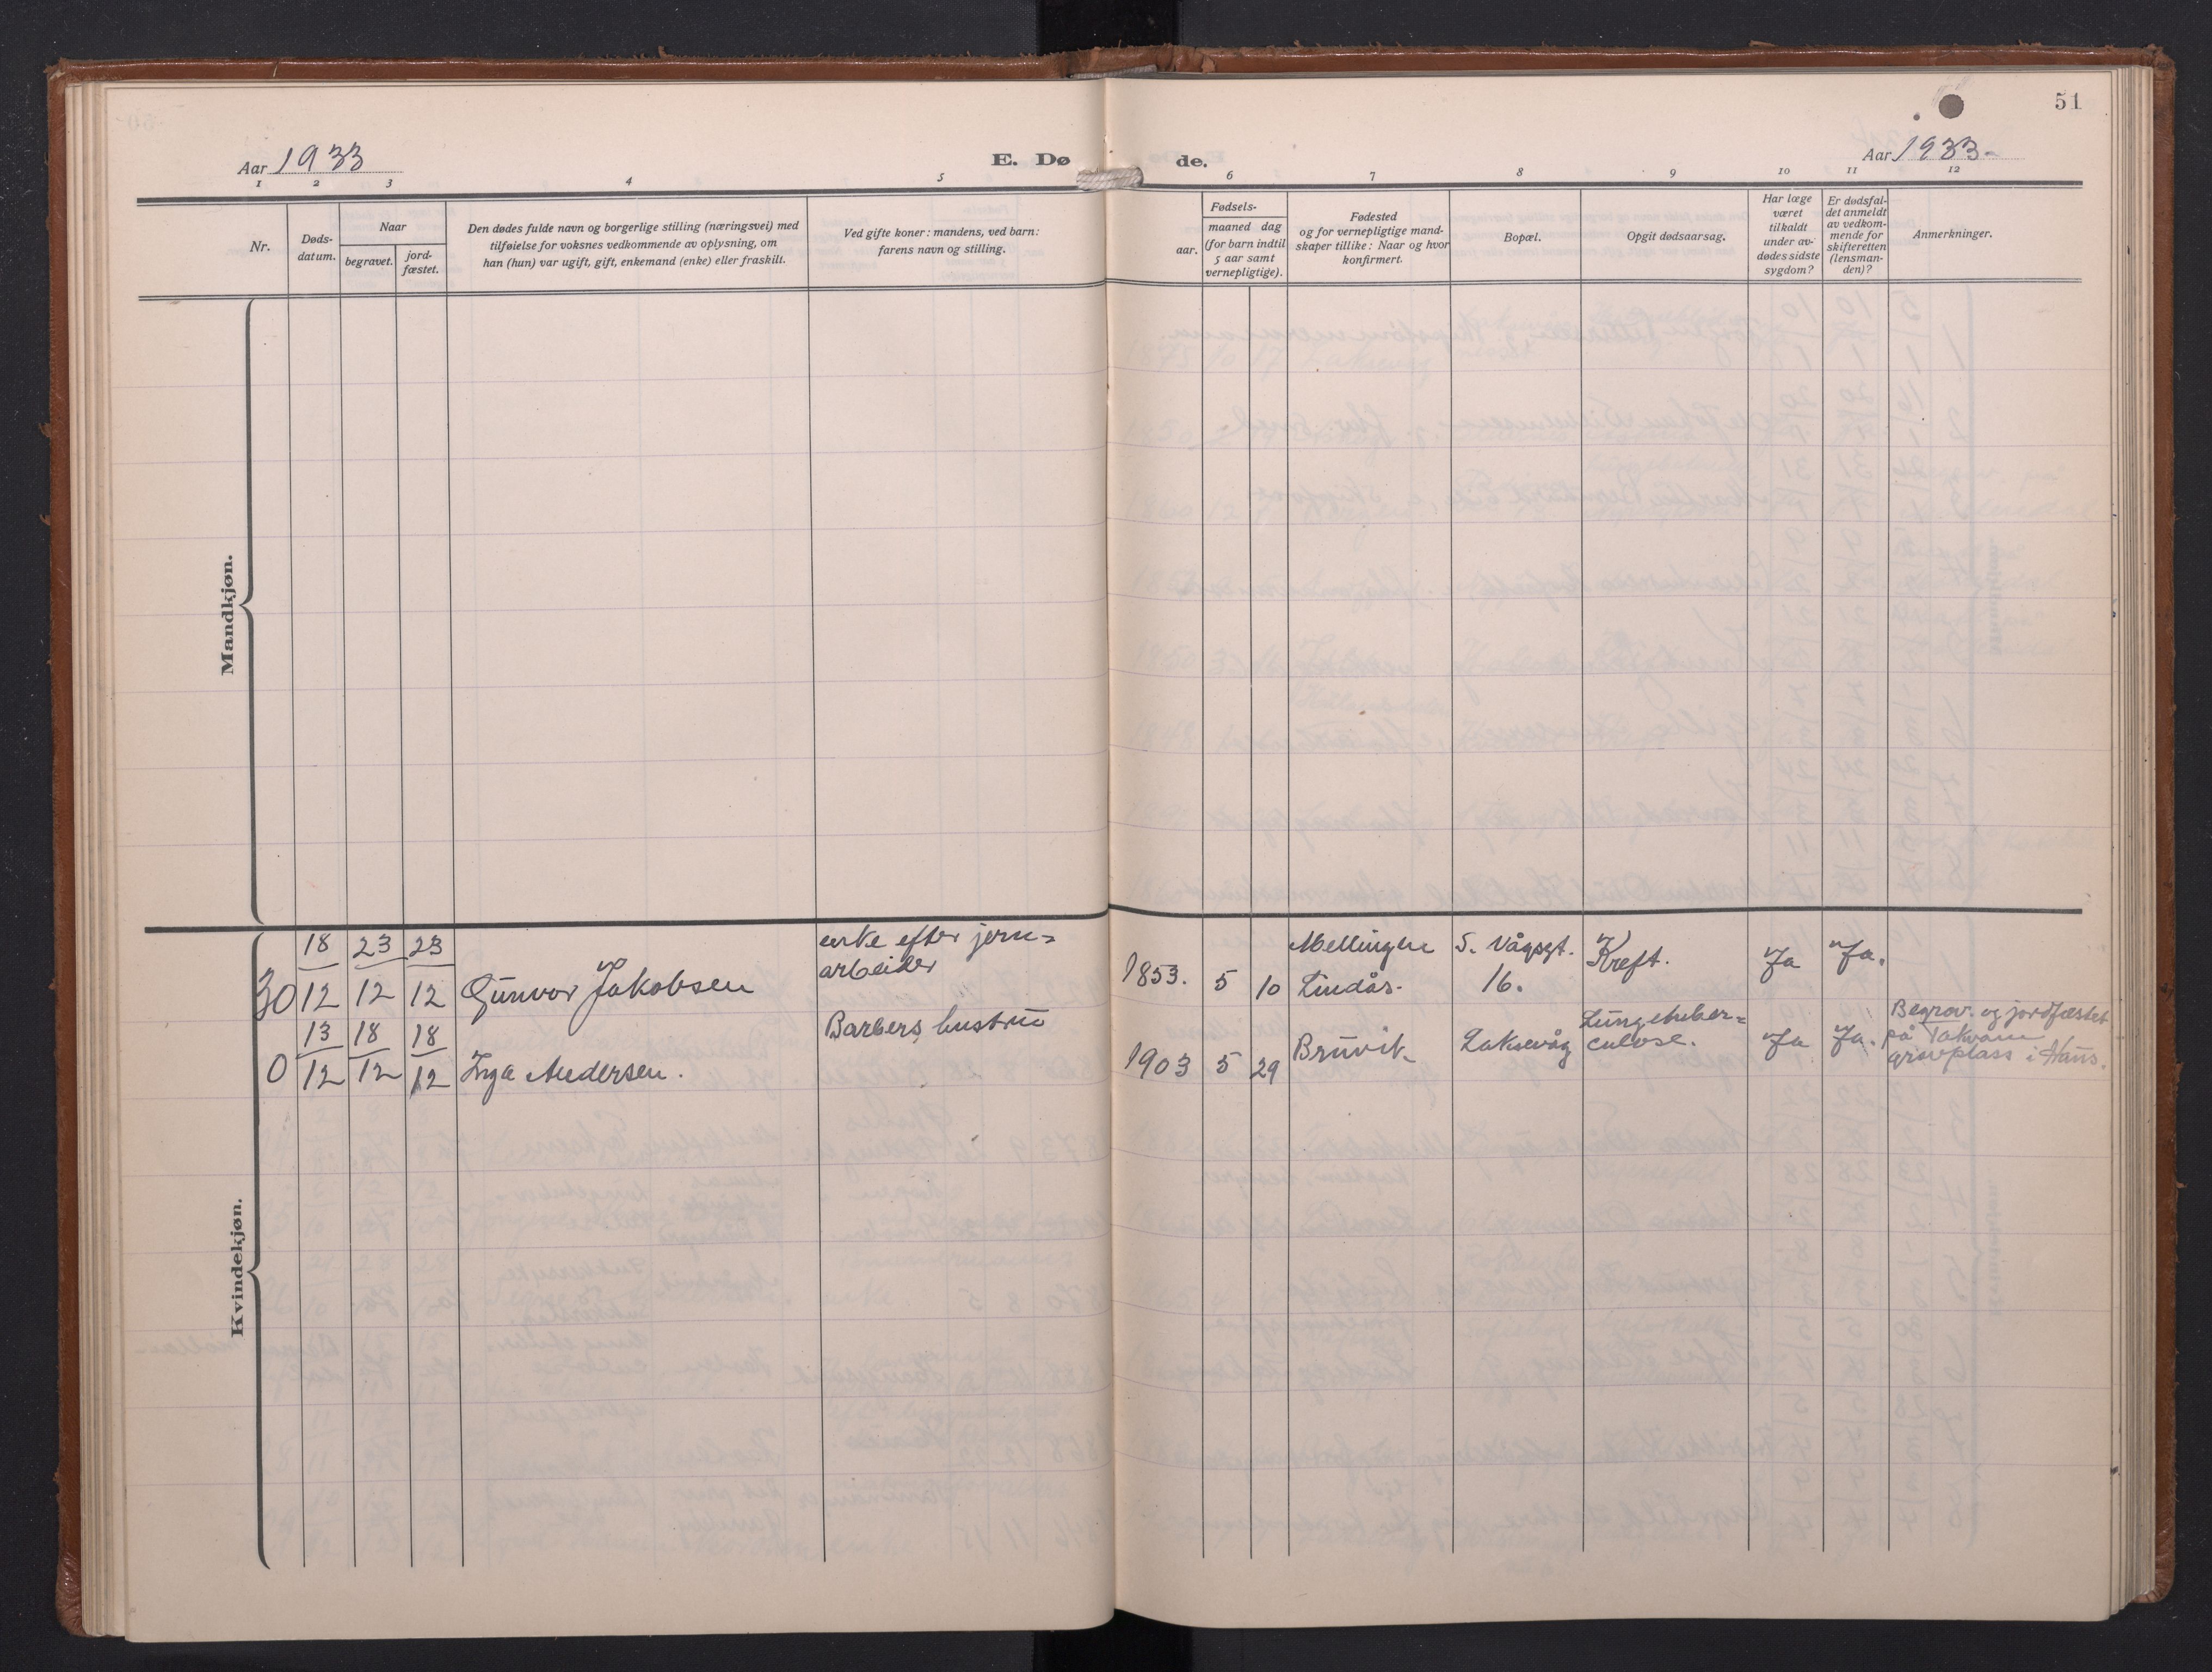 51
Aar 1933
E. Dø
de.
Aar 1933-
1 2 3 4 5 6 7 8 9 10 11 12
Nr.
Døds-
datum.
Naar
begravet.
jord-
fæstet.
Den dødes fulde navn og borgerlige stilling (næringsvei) med
tilføielse for voksnes vedkommende av oplysning, om
han (hun) var ugift, gift, enkemand (enke) eller fraskilt.
Ved gifte koner: mandens, ved barn:
farens navn og stilling.
Fødsels-
aar.
maaned dag
(for barn indtil
5 aar samt
vernepligtige).
Fødested
og for vernepligtige mand-
skaper tillike: Naar og hvor
konfirmert.
Bopæl.
Opgit dødsaarsag.
Har læge
været
tilkaldt
under av-
dødes sidste
sygdom?
Er dødsfal-
det anmeldt
av vedkom-
mende for
skifteretten
(lensman-
den)?
Anmerkninger.
Mandkjøn.
Kvindekjøn.
30
18
12
23
12
23
12
Gunvor Jakobsen
enke efter jern=
arbeider
1853. 5 10
Mellingen
Lindås.
S. Vågsgt.
16.
Kreft.
Ja
Ja.
0
13
12
18
12
18
12
Inga Andersen.
Barbers hustru
1903 5 29
Bruvik
Laksevåg
Lungetuber=
culose.
Ja
Ja.
Begrav. og jordfæstet
på Takvam
gravplass i Haus.